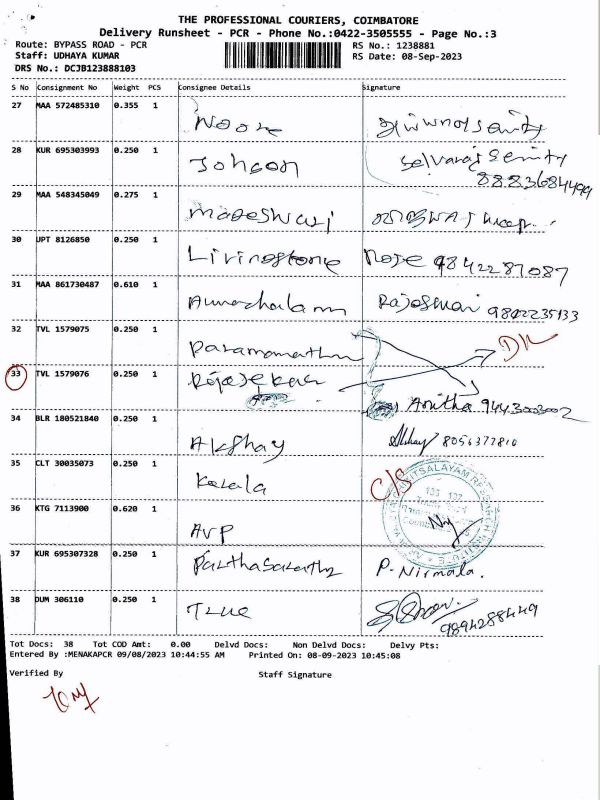 THE PROFESSIONAL COURIERS, COIMBATORE
Delivery Runsheet - PCR - Phone No.:0422-3505555 - Page No.:3
Route: BYPASS ROAD - PCR RS No.: 1238881
Staff: UDHAYA KUMAR RS Date: 08-Sep-2023
DRS No.: DCJB123888103
S No Consignment No Weight PCS Consignee Details Signature
27 MAA 572485310 0.355 1
Noone
28 KUR 695303993 0.250 1 Selvaraj
Johson
29 MAA 548345049 0.275 1
Mageswari
30 UPT 8126850 0.250 1
Livingstone Rose 9842287087
31 MAA 861730487 0.610 1
Arunachalam Rajeswari
32 TVL 1579075 0.250 1
33 TVL 1579076 0.250 1
Rajasekar Anitha 9443003002
34 BLR 180521840 0.250 1
Akshay 8056377810
35 CLT 30035073 0.250 1
Kerala C/S
36 KTG 7113900 0.620 1
AVP
37 KUR 695307328 0.250 1
Parthasarathy P. Nirmala.
38 DUM 306110 0.250 1
True 9894288449
Tot Docs: 38 Tot COD Amt: 0.00 Delvd Docs: Non Delvd Docs: Delvy Pts:
Entered By :MENAKAPCR 09/08/2023 10:44:55 AM Printed On: 08-09-2023 10:45:08
Verified By Staff Signature